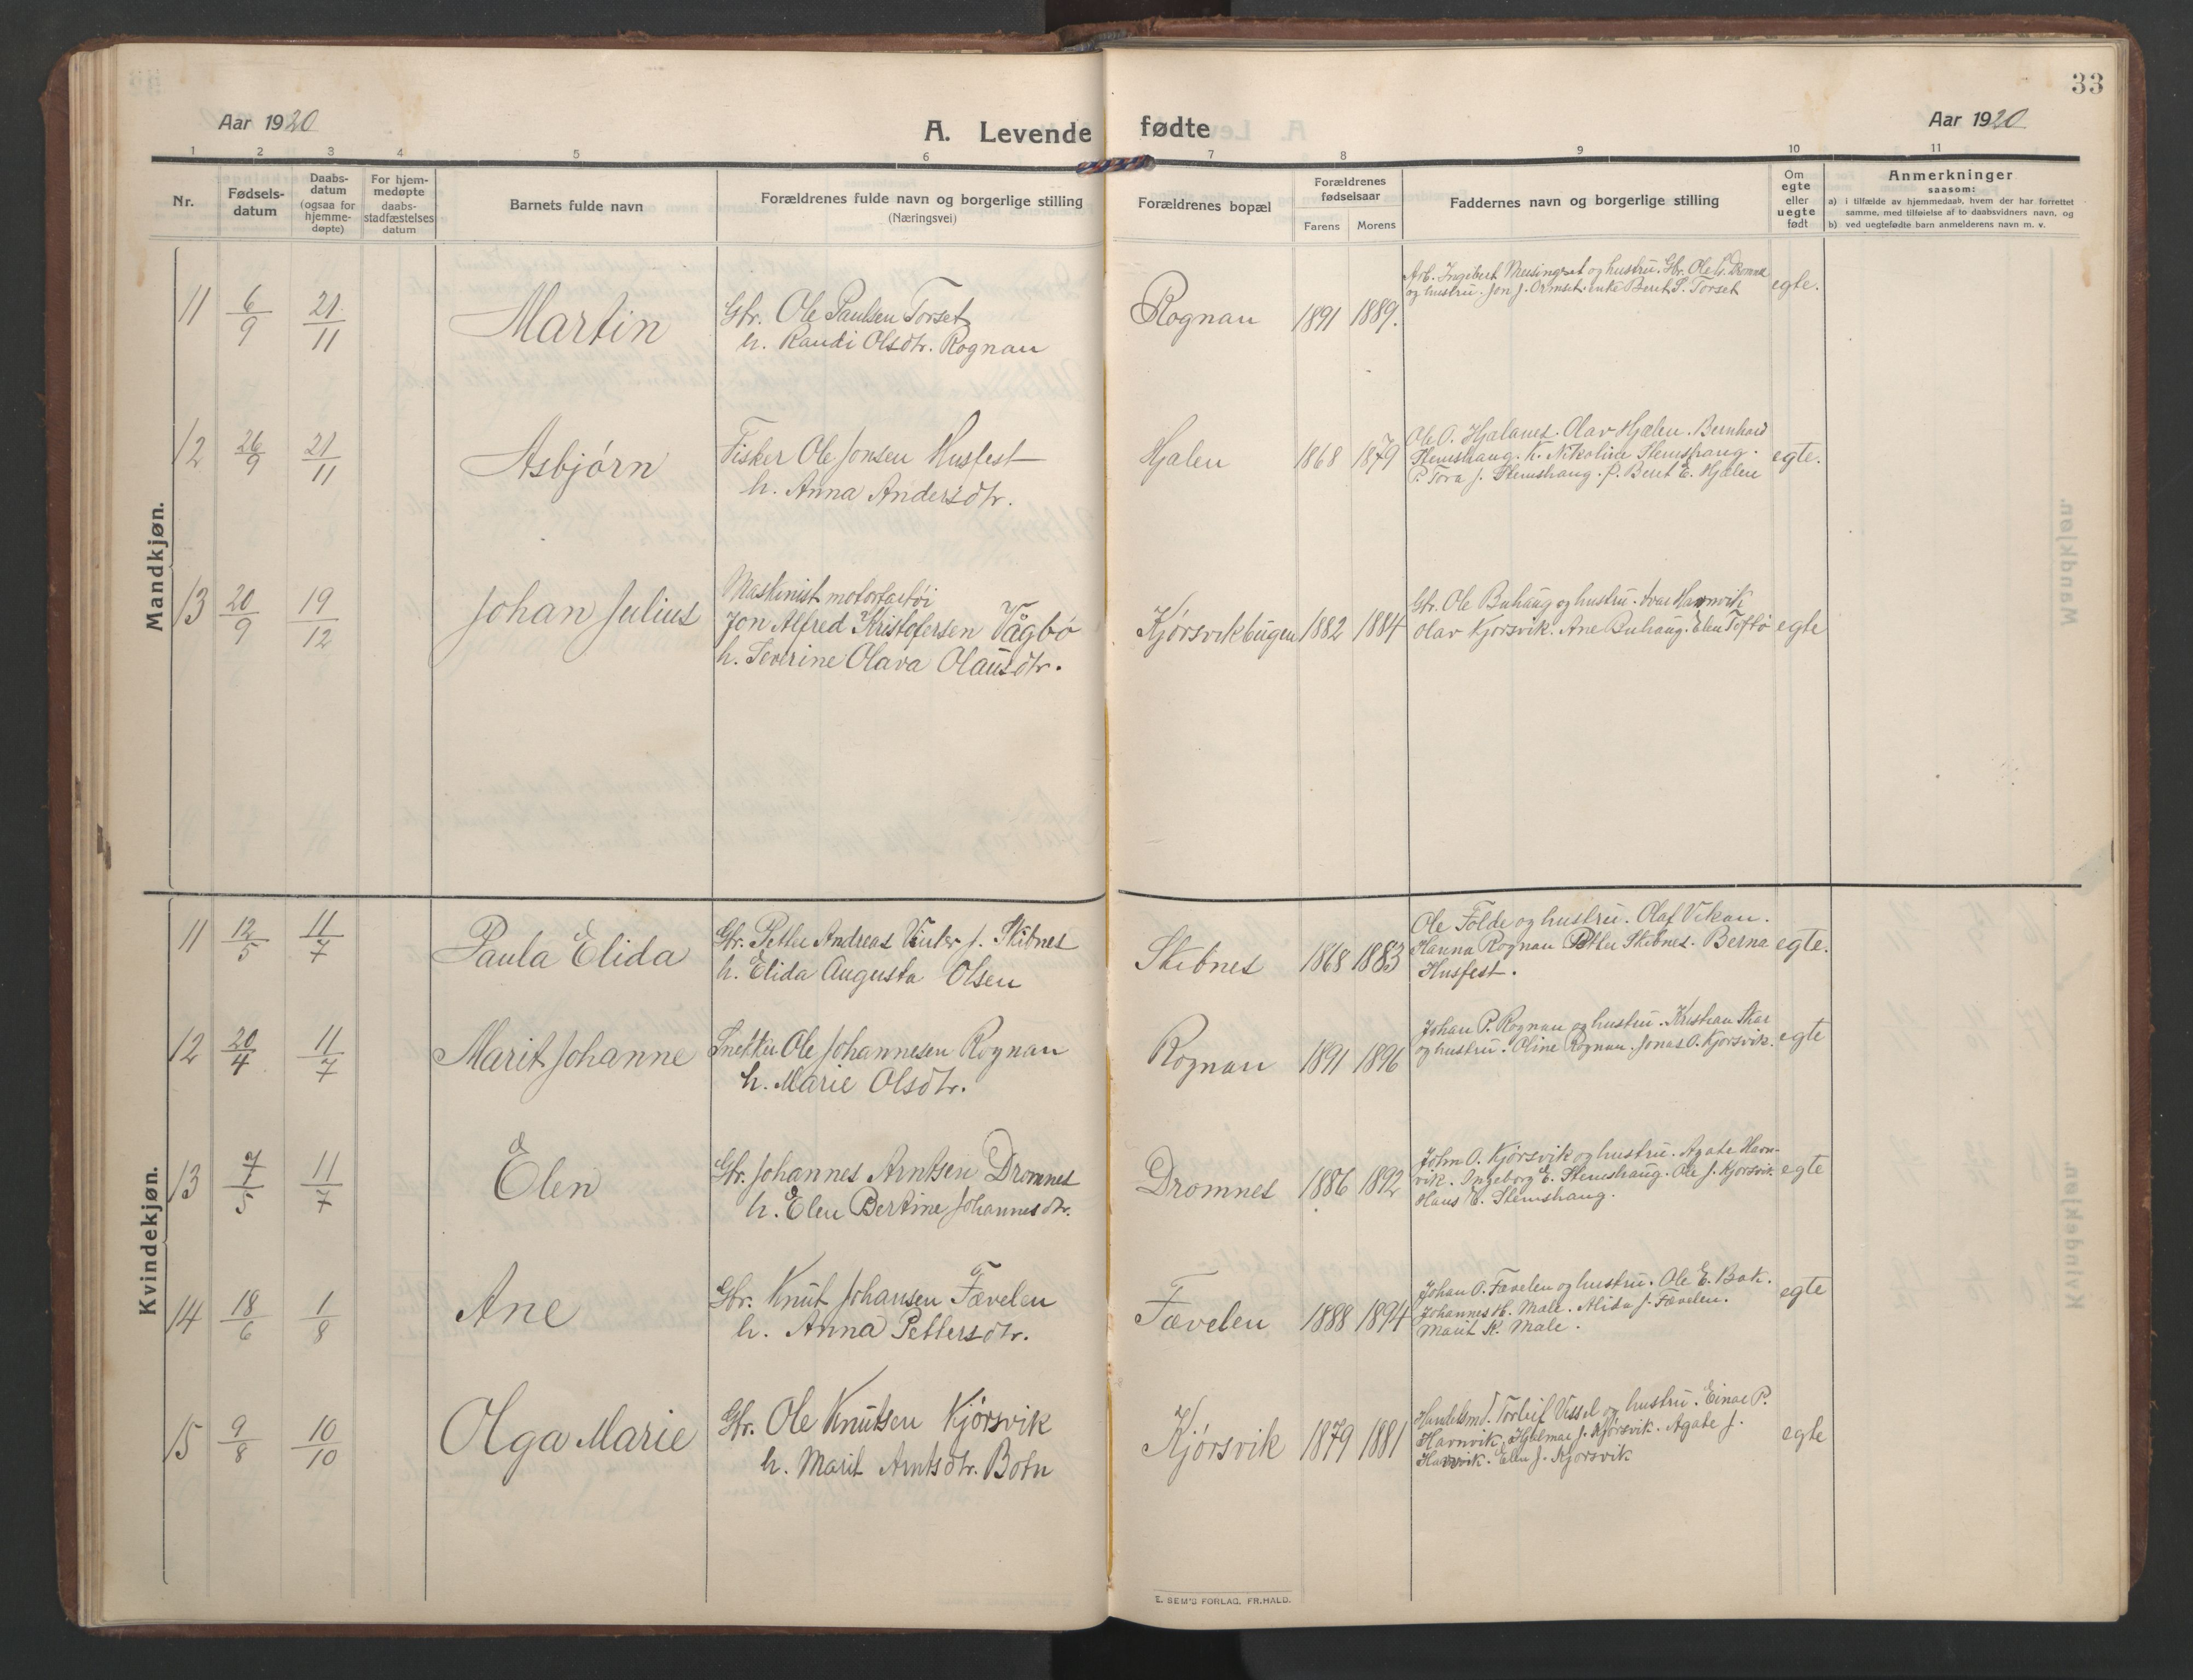 33
Aar 1920
A. Levende fødte
Aar 1920
1 2 3 4 5 6 7 8 9 10 11
Nr.
Fødsels-
datum
Daabs-
datum
(ogsaa for
hjemme-
døpte)
For hjem-
medøpte
daabs-
stadfæstelses
datum
Barnets fulde navn
Forældrenes fulde navn og borgerlige stilling
(Næringsvei)
Forældrenes bopæl
Forældrenes
fødselsaar
Farens Morens
Faddernes navn og borgerlige stilling
Om
egte
eller
uegte
født
Anmerkninger
saasom:
a) i tilfælde av hjemmedaab, hvem der har forrettet
samme, med tilføielse af to daabsvidners navn, og
b) ved uegtefødte barn anmelderens navn m. v.
Mandkjøn.
11 6/9 21/11 Martin
Gbr. Ole Paulsen Torset
h. Randi Olsdtr. Rognan
Rognan 1891 1889.
Arb. Ingebert og hustru. Gbr. Ole
og hustru. Jon J. Ormset. enke Berit S. Torset
egte.
12 26/9 21/11 Asbjørn
Fisker Ole Jonsen Husfest
h. Anna Andersdtr.
Hjalen 1868 1879
Ole O. Hjalanes. Olav Hjælen. Bernhard
Stemshaug. K. Nikoline Stemshaug.
P. Tora J. Stemshaug. P. Berit E. Hjælen
egte.
13 20/9 19/12 Johan Julius
Maskinist motorfartøi
Jon Alfred Kristofersen Vågbø
h. Severine Olava Olausdtr.
Kjørsvikbugen 1882 1884
Gbr. Ole Buhaug og hustru. Ivar Havnvik
Olav Kjørsvik. Ane Buhaug. Elen Toftø
egte
Kvindekjøn.
11 12/5 11/7 Paula Elida
Gbr. Petter Andreas J. Skibnes
h. Elida Augusta Olsen
Skibnes 1868 1883
Ole Folde og hustru. Olaf Vikan.
Hanna Rognan Petter Skibnes. Berna
Husfest.
egte.
12 20/4 11/7 Marit Johanne
Snekker Ole Johannesen Rognan
h. Marie Olsdtr.
Rognan 1891 1896
Johan P. Rognan og hustru. Kristian Skar
og hustru. Oline Rognan. Jonas O. Kjørsvik.
egte
13 7/5 11/7 Elen
Gbr. Johannes Arntsen Dromnes
h. Elen Bertine Johannesdtr.
Dromnes 1886 1892
John O. Kjørsvik og hustru. Agate Havn-
vik. Ingeborg E. Stemshaug. Ole J. Kjørsvik
Hans E. Stemshaug.
egte
14 18/6 1/8 Ane
Gbr. Knut Johansen Fævelen
h. Anna Pettersdtr.
Fævelen 1888 1894
Johan O. Fævelen og hustru. Ole E. Bak.
Johannes H. Male. Alida J. Fævelen.
Marit K. Male.
egte
15 9/8 10/10 Olga Marie
Gbr. Ole Knutsen Kjørsvik
h. Marit Arntsdtr. Botn
Kjørsvik 1879 1881
Handelsmd. Torleif Vessel og hustru. Einar P.
Havnvik, Hjalmar J. Kjørsvik. Agate J.
Havnvik. Elen J. Kjørsvik
egte
E. SEM'S FORLAG, FR.HALD.